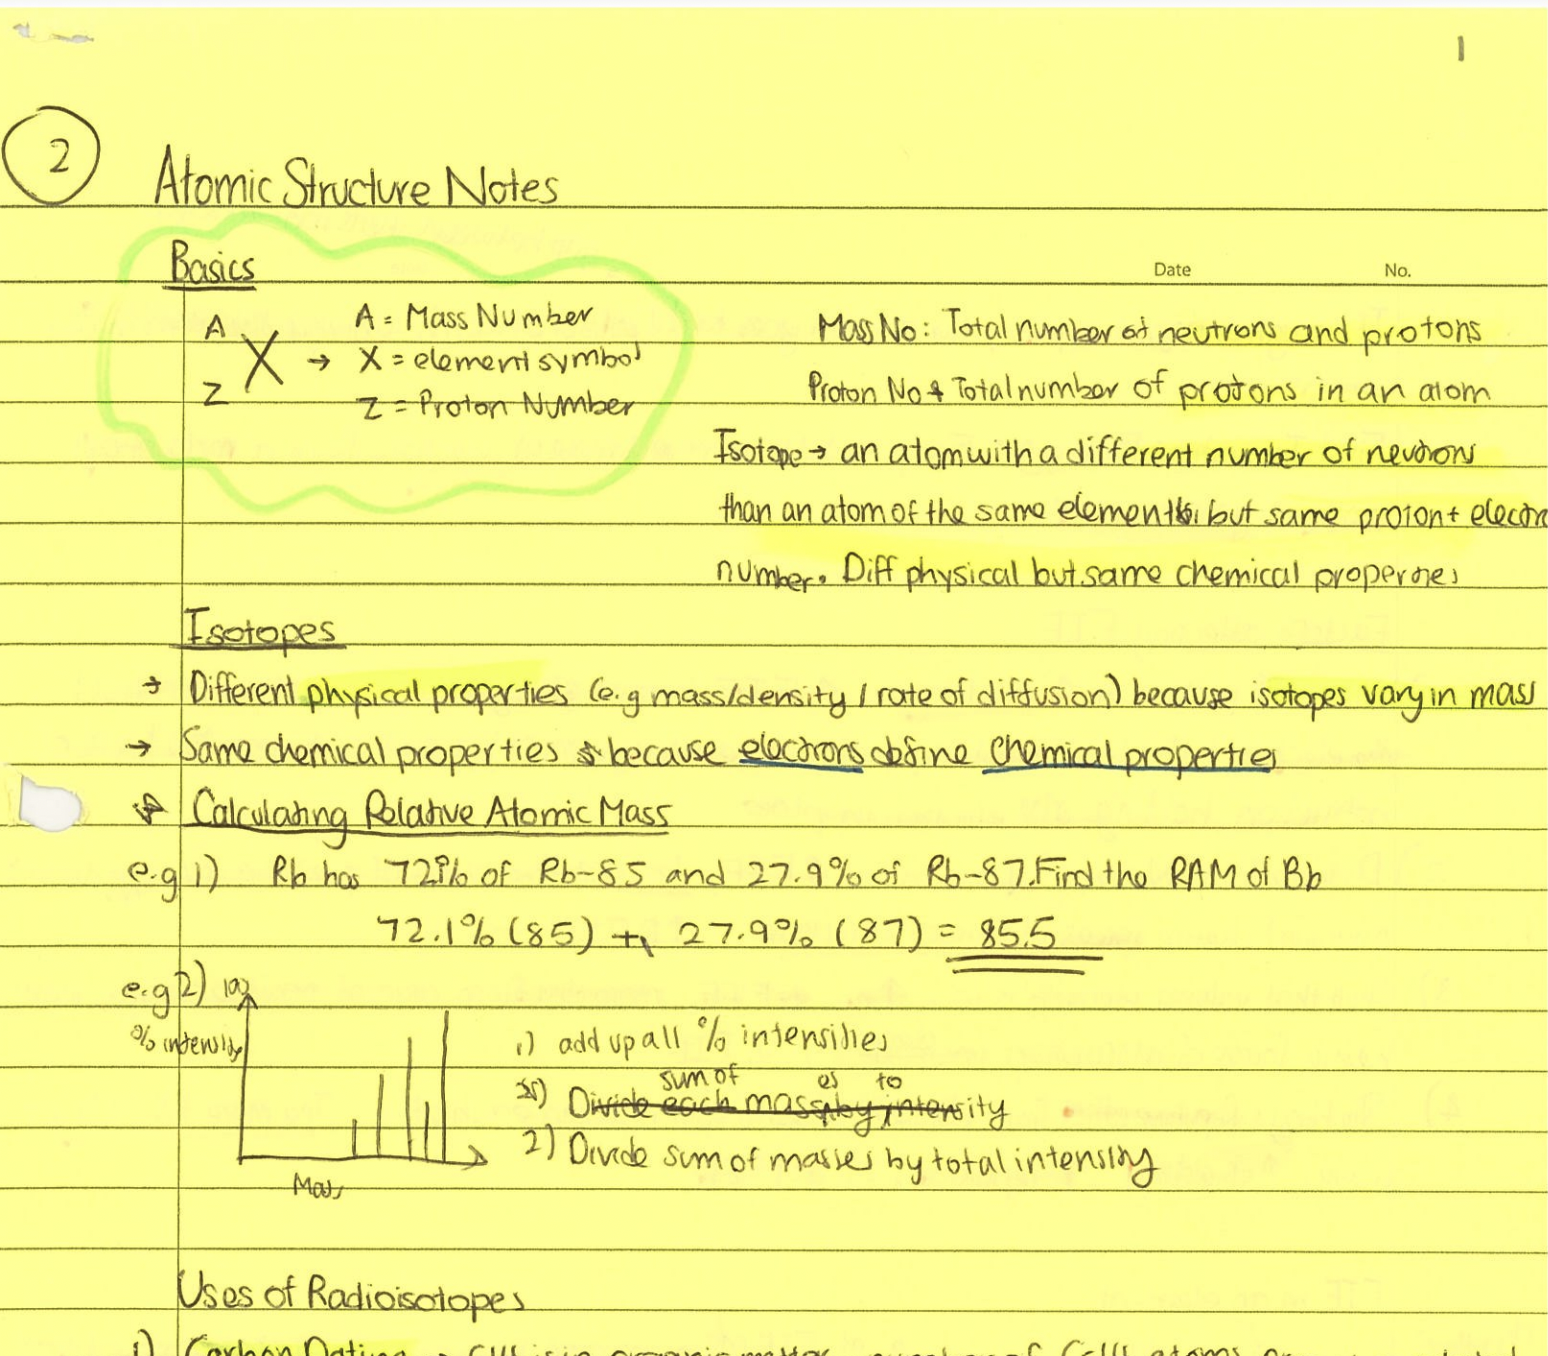 1
2
Atomic Structure Notes
Basics
Date No.
A X Z →
A = Mass Number
X = element symbol
Z = Proton Number
Mass No: Total number of neutrons and protons
Proton No: Total number of protons in an atom
Isotope → an atom with a different number of neutrons
than an atom of the same element, but same proton + electro
number. Diff physical but same chemical properties
Isotopes
→ Different physical properties (e.g mass/density / rate of diffusion) because isotopes vary in mass
→ Same chemical properties because electrons define chemical properties
Calculating Relative Atomic Mass
e.g 1) Rb has 72.1% of Rb-85 and 27.9% of Rb-87. Find the RAM of Rb
72.1% (85) + 27.9% (87) = 85.5
e.g 2) 100
% intensity
Mass
1) add up all % intensities
sum of es to
Divide each mass by intensity
2) Divide sum of masses by total intensity
Uses of Radioisotopes
1) Carbon Dating → is in organic matter, number of atoms